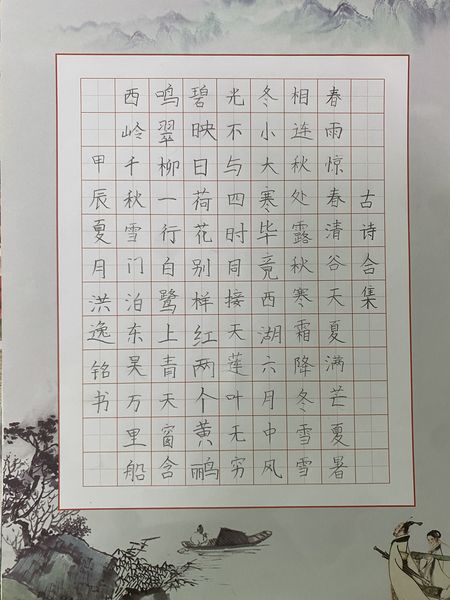 古诗合集
春雨惊春清谷天夏满芒夏暑
相连秋处露秋寒霜降冬雪雪
冬小大寒毕竟西湖六月中风
光不与四时同接天莲叶无穷
碧映日荷花别样红两个黄鹂
鸣翠柳一行白鹭上青天窗含
西岭千秋雪门泊东吴万里船
甲辰夏月洪逸铭书